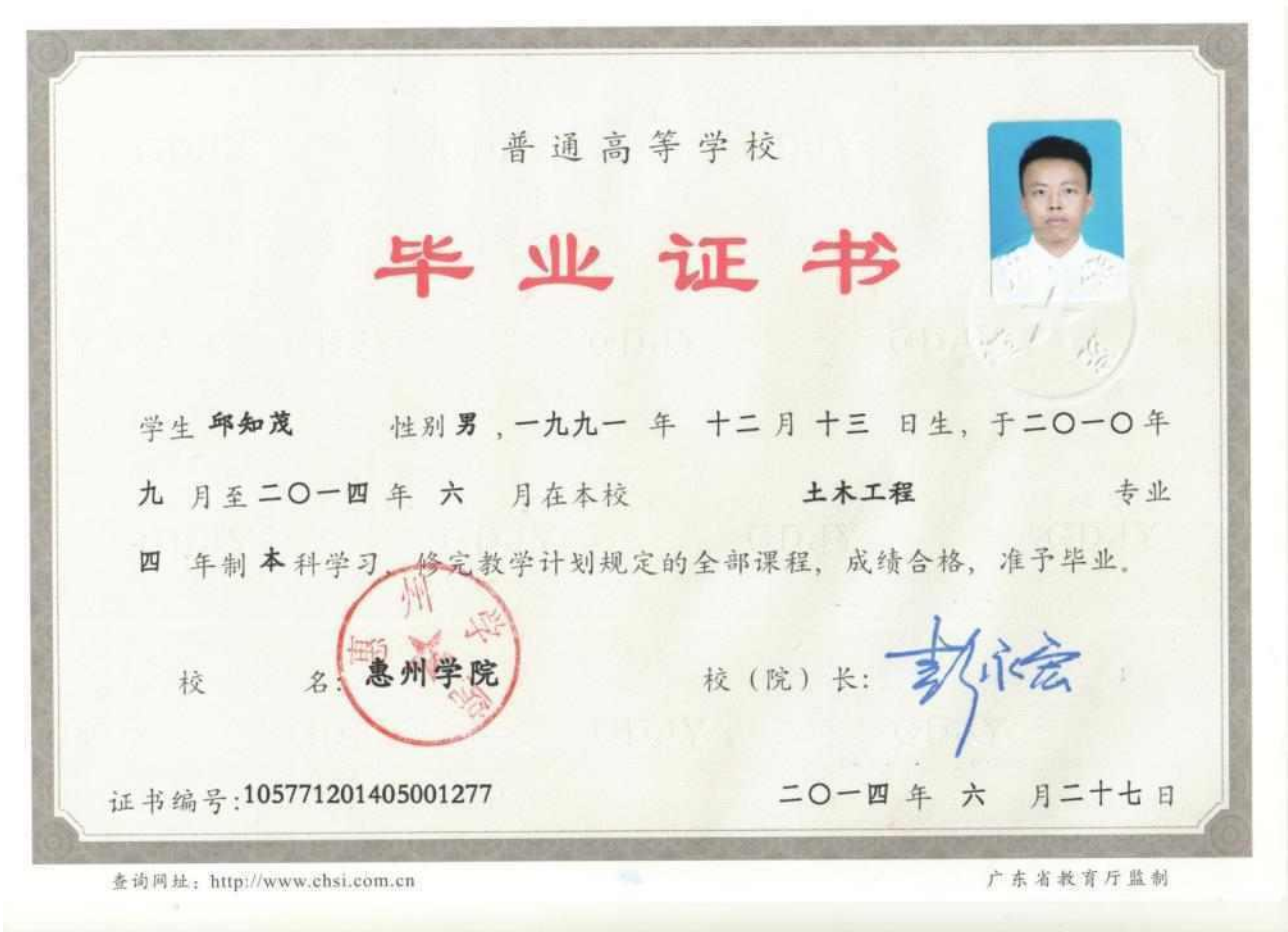 普通高等学校
毕业证书
学生 邱知茂 性别 男 , 一九九一 年 十二 月 十三 日生, 于二〇一〇年
九 月至二〇一四 年 六 月在本校 土木工程 专业
四 年制 本 科学习, 修完教学计划规定的全部课程, 成绩合格, 准予毕业。
惠州学院
校 名: 惠州学院 校（院）长: 彭永宏
证书编号:105771201405001277 二〇一四 年 六 月二十七 日
查询网址: http://www.chsi.com.cn 广东省教育厅监制